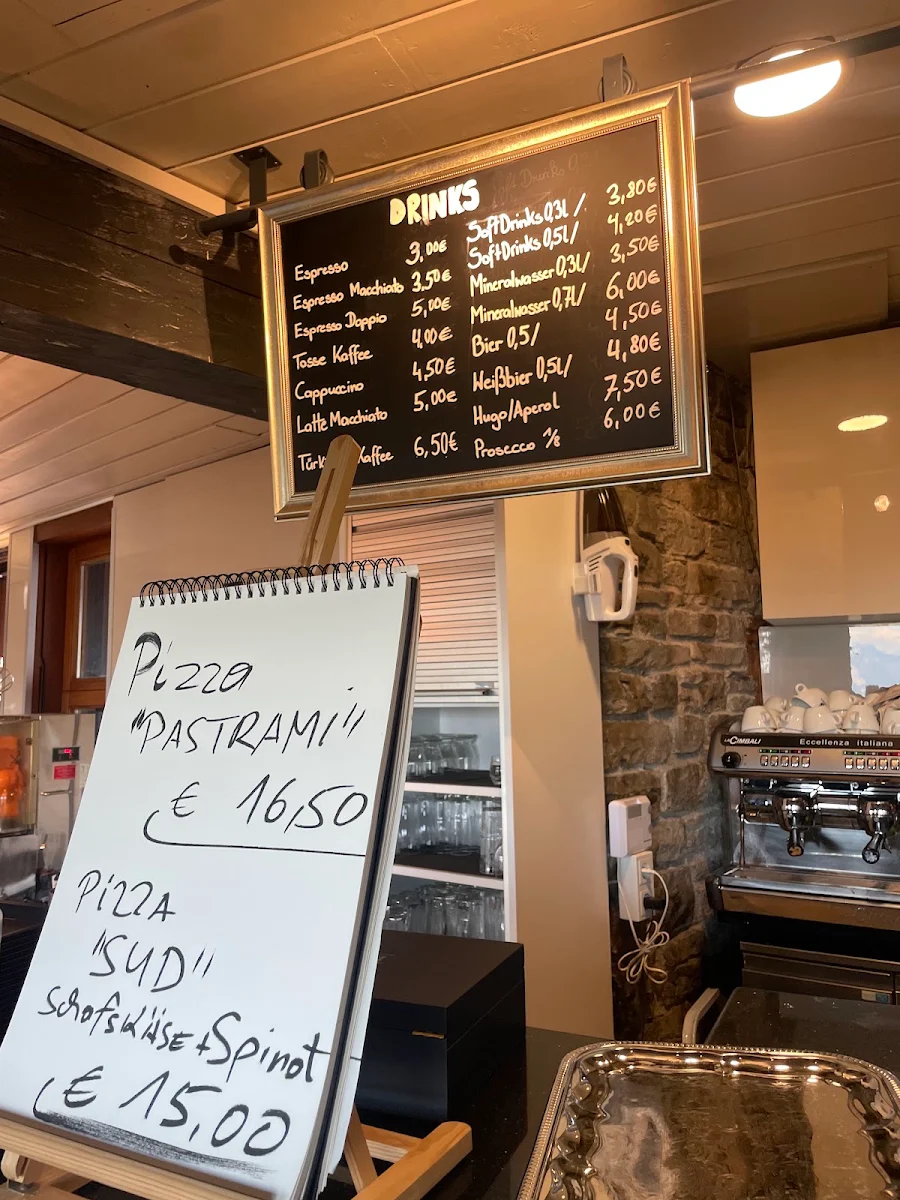 DRINKS
Espresso 3,00€
Espresso Macchiato 3,50€
Espresso Doppio 5,00€
Tasse Kaffee 4,00€
Cappuccino 4,50€
Latte Macchiato 5,00€
Türk Kaffee 6,50€
SoftDrinks 0,3l / 3,80€
SoftDrinks 0,5l / 4,20€
Mineralwasser 0,3l / 3,50€
Mineralwasser 0,7l / 6,00€
Bier 0,5 / 4,50€
Weißbier 0,5l / 4,80€
Hugo/Aperol 7,50€
Prosecco 1/8 6,00€
Pizza
"PASTRAMI"
€ 16,50
PIZZA
"SUD"
Schafskäse + Spinat
€ 15,00
LaCIMBALI Eccellenza italiana